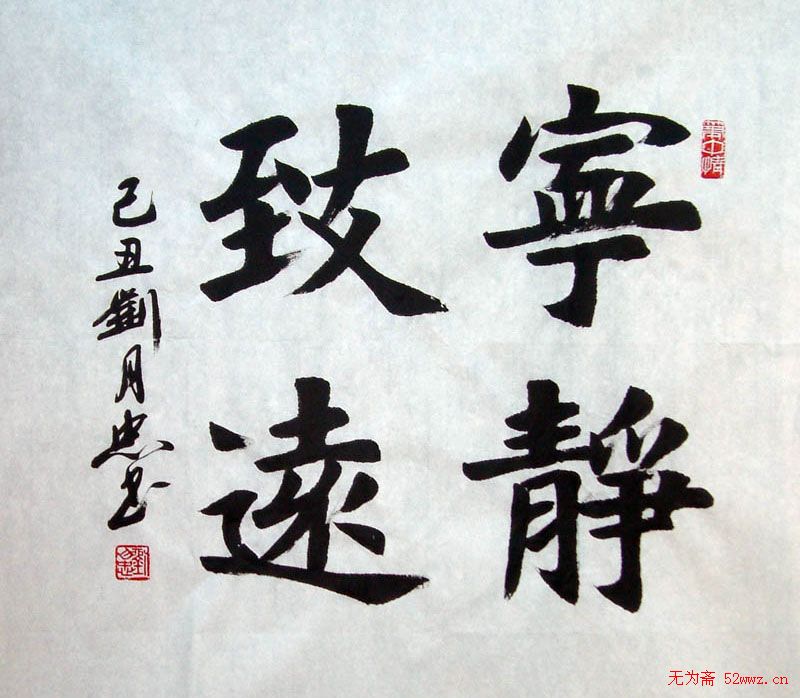 寧靜
致遠
己丑劉月忠書
无为斋 52wwz.cn